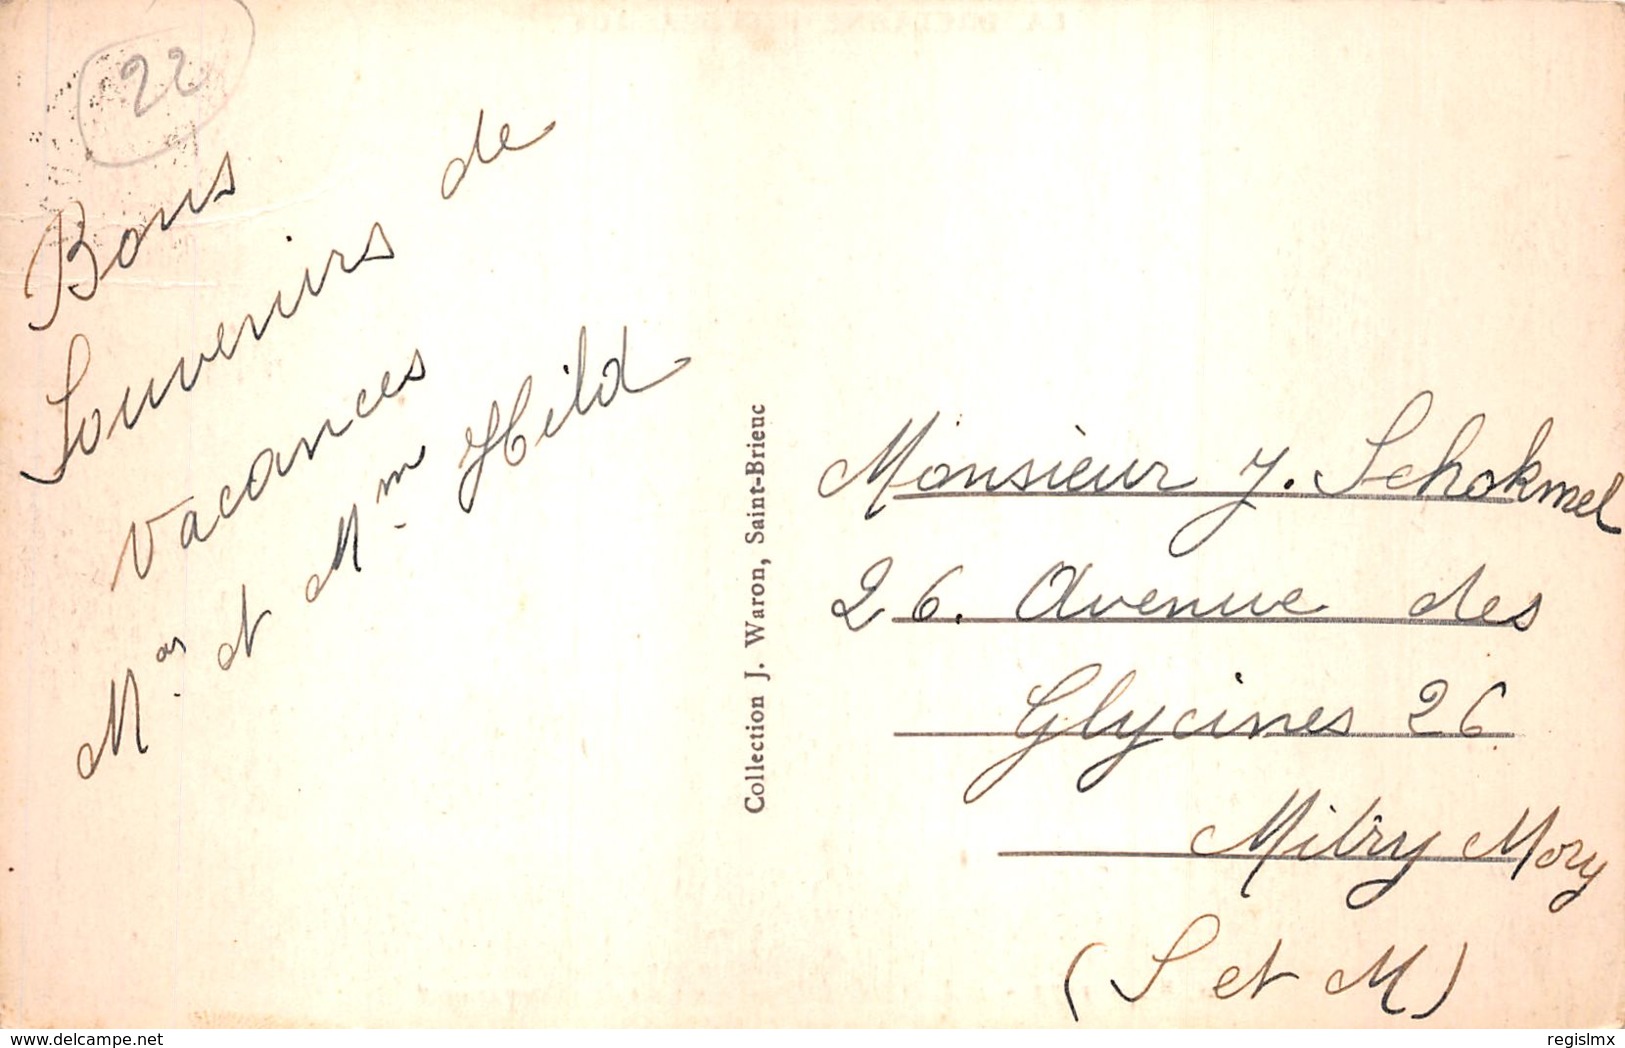 22
Bons
Souvenirs de
Vacances
Mr. et Mme Hild
Collection J. Waron, Saint-Brieuc
Monsieur J. Schokmel
26. Avenue des
Glycines 26
Mitry Mory
(S et M)
delcampe.net
regislmx